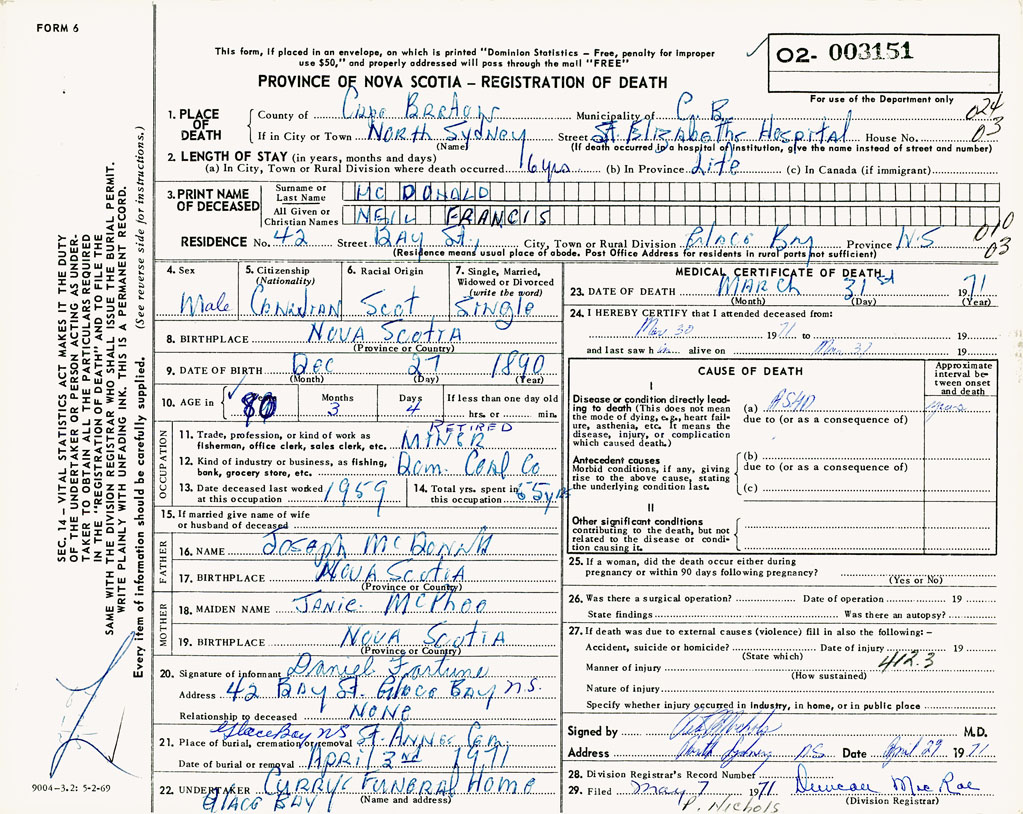 FORM 6
This form, if placed in an envelope, on which is printed "Dominion Statistics – Free, penalty for improper
use $50," and properly addressed will pass through the mail "FREE"
O2- 003151
PROVINCE OF NOVA SCOTIA – REGISTRATION OF DEATH
For use of the Department only
024
03
1. PLACE OF DEATH
County of Cape Breton Municipality of C. B.
If in City or Town North Sydney Street St. Elizabeths Hospital House No.
(Name) (If death occurred in a hospital or institution, give the name instead of street and number)
2. LENGTH OF STAY (in years, months and days)
(a) In City, Town or Rural Division where death occurred 6 yrs (b) In Province Life (c) In Canada (if immigrant)
3. PRINT NAME OF DECEASED
Surname or Last Name MC DONALD
All Given or Christian Names NEIL FRANCIS
010
03
RESIDENCE No. 42 Street BAY St., City, Town or Rural Division Glace Bay Province N.S
(Residence means usual place of abode. Post Office Address for residents in rural parts not sufficient)
4. Sex Male
5. Citizenship (Nationality) Canadian
6. Racial Origin Scot
7. Single, Married, Widowed or Divorced (write the word) Single
8. BIRTHPLACE NOVA SCOTIA
(Province or Country)
9. DATE OF BIRTH Dec 27 1890
(Month) (Day) (Year)
10. AGE in 80 Months 3 Days 4 If less than one day old
hrs. or min.
OCCUPATION
11. Trade, profession, or kind of work as fisherman, office clerk, sales clerk, etc. RETIRED MINER
12. Kind of industry or business, as fishing, bank, grocery store, etc. Dom. Coal Co
13. Date deceased last worked at this occupation 1959
14. Total yrs. spent in this occupation 55 yrs
15. If married give name of wife or husband of deceased
FATHER
16. NAME Joseph McDonald
17. BIRTHPLACE NOVA SCOTIA
(Province or Country)
MOTHER
18. MAIDEN NAME Janie McPhee
19. BIRTHPLACE NOVA SCOTIA
(Province or Country)
20. Signature of informant Daniel Fortune
Address 42 Bay St. Glace Bay N.S.
Relationship to deceased NONE
21. Place of burial, cremation or removal Glace Bay NS St. Annes Cem
Date of burial or removal April 3rd 1971
22. UNDERTAKER Curry's Funeral Home
(Name and address)
Glace Bay
MEDICAL CERTIFICATE OF DEATH
23. DATE OF DEATH MARCH 31st 1971
(Month) (Day) (Year)
24. I HEREBY CERTIFY that I attended deceased from:
Mar 30 1971 to 19
and last saw him alive on Mar. 31 19
CAUSE OF DEATH
Approximate interval between onset and death
I
Disease or condition directly leading to death (This does not mean the mode of dying, e.g., heart failure, asthenia, etc. It means the disease, injury, or complication which caused death.)
(a) ASHD years
due to (or as a consequence of)
Antecedent causes
Morbid conditions, if any, giving rise to the above cause, stating the underlying condition last.
(b)
due to (or as a consequence of)
(c)
II
Other significant conditions contributing to the death, but not related to the disease or condition causing it.
25. If a woman, did the death occur either during pregnancy or within 90 days following pregnancy?
(Yes or No)
26. Was there a surgical operation? Date of operation 19
State findings Was there an autopsy?
27. If death was due to external causes (violence) fill in also the following: –
Accident, suicide or homicide? Date of injury 19
(State which) 412.3
Manner of injury
(How sustained)
Nature of injury
Specify whether injury occurred in industry, in home, or in public place
Signed by M.D.
Address North Sydney NS Date April 29 1971
28. Division Registrar's Record Number
29. Filed May 7 1971 Duncan MacRae
(Division Registrar)
P. Nichols
SEC. 14 – VITAL STATISTICS ACT MAKES IT THE DUTY
OF THE UNDERTAKER OR PERSON ACTING AS UNDER-
TAKER TO OBTAIN ALL THE PARTICULARS REQUIRED
IN THE "REGISTRATION OF DEATH" AND TO FILE THE
SAME WITH THE DIVISION REGISTRAR WHO SHALL ISSUE THE BURIAL PERMIT.
WRITE PLAINLY WITH UNFADING INK. THIS IS A PERMANENT RECORD.
Every item of information should be carefully supplied. (See reverse side for instructions.)
9004-3.2: 5-2-69